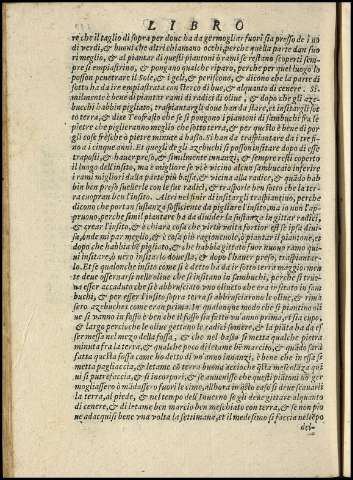 LIBRO
re che il taglio di sopra per douc ha da germogliar fuori sia presso de i no
di verdi, & buoni che altri chiamano occhi, perche quella parte dan suo
ri meglio, & al piantar di questi piantoni ò rami se restano scoperti sem-
pre si empiastrino, & pongano qualche riparo, perche per quel luogo lo
posson penetrare il Sole, & i geli, & periscono, & dicono che la parte di
sotto ha da ire empiastrata con sterco di bue, & alquanto di cenere. Si-
milmente è bene di piantar rami di radici di oliue, & dopo che gli aze-
buchi habbin pigliato, traspiantargli doue han da stare, et insitargli sot
to, & dice Teofrasto che se si pongono i piantoni di sambuchi fra le
pietre che piglieranno meglio che sotto terra, & per questo è bene di por-
gli cose fresche ò pietre minute à basso. Et han da traspiantare da i tre fi-
no a i cinque anni. Et quegli de gli azebuchi si possono insitare dopo di esse
traposti, & hauer preso, & similmente innanzi, & sempre resti coperto
il luogo dell'insito, ma è migliore se vi è vicino alcun sambucaio inferire
i rami migliori dalla parte più bassa, & vicina alla radice, & quādo hab
bin ben preso suellerle con le sue radici, & trasporle ben sotto che la ter-
ra cuopran ben l'insito. Altri nel fine di insitargli traspiantino, perche
dicono che portan sustanza sofficiente da pigliare l'insito, ma io non l'ap
pruouo, perche simil piantare ha da diuider la sustanza in gittar radici,
& crear l'insito, & è chiara cosa che virtù volta fortior est se ipsa diui
sa, & nde mi par meglio, & è cosa più ragioneuole, ò piantar il piantone, &
dopo che habbia bē pigliato, & che habbia gittato fuor nuouo ramo qui
ui insitare, ò uero insitarlo doue sta, & dopo l'hauer preso, traspiantar-
lo. Et se qualche insito come si è detto ha da ire sotto terra maggiormen
te deue osseruarsi nelle oliue che si insitano in sambuchi, perche si truo
va esser accaduto che si abbrucciato vno oliueto che era insitato in sam
buchi, & per esser l'insito sopra terra si abbrusciarono le oliue, & rima
sero azebuches come eran prima. In qualunque modo che si piantino oli
ue si vanno in fosso è ben che il fosso sia fatto vn'anno prima, et sia cupo,
& largo perciochele oliue gettano le radici sonore, & la piāta ha da es
ser messa nel mezo della fossa, & che nel basso si metta qualche pietra
minuta frà la terra, & qualche poco di letame bē marcio, & quando sarà
fatta questa fossa come ho detto di vn'anno innanzi, è bene che in essa si
metta pagliaccia, & letame cō terra buona acciochè q̄sta mescolaza qui
ui si putrefaccia, & si incorpori, & se auuenisse che questi piantoni nō ger
mogliassero ò mādassero fuori le cime, allhora in q̄sto caso si deue scauarli
la terra, al piede, & nel tempo dell'Inuerno se gli deue gittare alquanto
di cenere, & di letame ben marcio ben meschiato con terra, & se non pio
ue ad acquisi bene vna volta la settimana, et il medesimo si faccia nel tēpo
del-